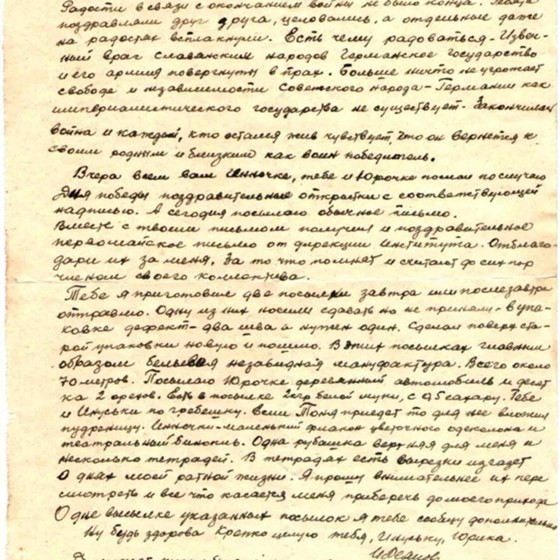 Радости в связи с окончанием войны не было конца.
поздравляли друг друга, целовались, а отдельные даже
на радостях всплакнули. Есть чему радоваться. Извеч-
ный враг славянских народов Германское государство
и его армия повергнуты в прах. Больше ничто не угрожает
свободе и независимости Советского народа - Германии как
империалистического государства не существует. Закончилась
война и каждый, кто остался жив чувствует, что он вернется к
своим родным и близким как воин победитель.
Вчера всем вам Инночке, тебе и Юрочке послал по случаю
Дня победы поздравительные открытки с соответствующей
надписью. А сегодня посылаю обычное письмо.
Вместе с твоим письмом получил и поздравительное
первомайское письмо от дирекции института. Отблаго-
дари их за меня, за то что помнят и считают до сих пор
членом своего коллектива.
Тебе я приготовил две посылки завтра или послезавтра
отправлю. Одну из них носили сдавать но не приняли - в упа-
ковке дефект - два шва а нужен один. Сделал поверх ста-
рой упаковки новую и пошлю. В этих посылках главным
образом бельевая незавидная мануфактура. Всего около
70 метров. Посылаю Юрочке деревянный автомобиль и десят
ка 2 орехов. Есть в посылке 2 кгр белой муки, с 0,5 сахару. Тебе
и Инуськи по гребешку. Если Тоня приедет то для нее вложил
пудреницу. Инночки - маленький флакон цветочного одеколона и
театральный бинокль. Одна рубашка верхняя для меня и
несколько тетрадей. В тетрадях есть вырезки из газет
О днях моей ратной жизни. Я прошу внимательнее их пере
смотреть и все что касается меня приберечь до моего приезда
О дне высылке указанных посылок я тебе сообщу дополнительно
Ну будь здорова Крепко целую тебя, Инуньку, Юрика.